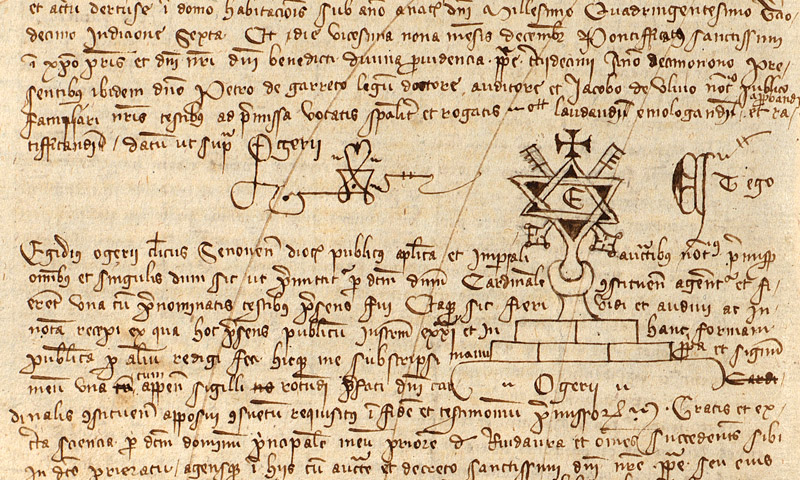 et actu dertuse i domo habitacois sub ano anatis dni Millesimo Quadringentesimo
decimo Indicione Sexta Et die vicesima nona mensis decembr Pontifficatus sanctissimi
i xpo pris et dni nri dni benedicti divina pvidencia ppe tridecimi Anno decimonono Pre
sentibus ibidem dno Petro de garreto legum doctore auditore et Jacobo de Ulmo noto publico
familiari nris testibus ad pmissa vocatis spalit et rogatis laudandi emologandi approbandi et ra
tifficandi / datum ut sup Ogerii
E
E T ego
Egidius ogerii clicus Senonen dioc publicus aplica et Imperiali auctibus noti pmissis
omibus et singulis dum sic ut pmittit p dcm dnm Cardinale constituen agent et fi
erent una cu pnominatis testibus psens fui Eaque sic fieri vidi et audivi ac In
notam recepi ex qua hoc psens publicum instrm extxi et in hanc formam
publica p alium redigi feci hicque me subscripsi manu ppa et signum
meu una cum appen sigilli rotundi pfati dni car Ogerii Cardi
dinalis constituen apposui consuetu requisitus i fide et testimoniu pmissor Gratis et ex
cta sciencia p dcm dominum pncipale meu priore d Rivdaura et omes succedents sibi
In dco prioratu agensque i hiis cu aucte et decreto sanctissimi dni nri ppe seu eius